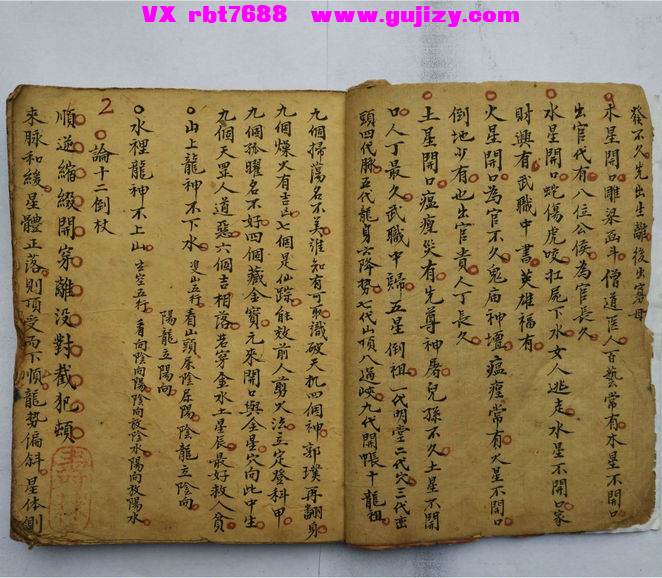 VX rbt7688 www.gujizy.com
發不久先出離後出寡母
木星開口雕梁畫斗僧道匠人百藝常有木星不開口
出官代有八位公侯為官長久
水星開口蛇傷虎咬扛屍下水女人逃走水星不開口家
財興有武職中書英雄福有
火星開口為官不久鬼廟神壇瘟瘽常有火星不開口
倒地少有也出官貴人丁長久
土星開口瘟瘽災有先尊神屠兒孫不久土星不開
口人丁最久武職中歸五星倒祖一代明堂二代穴三代
頭四代脉五代龍身六降勢七代山頂八過峽九代開帳十龍祖
九個掃蕩名不美誰知有可取識破天机四個神郭璞再翻身
九個燥火有吉凶七個是仙踪能效前人剪火法立定登科甲
九個孤曜名不好四個藏金寶元來開口與金星穴向此中生
九個天罡人道惡六個吉相落若穿金水土星辰最好救人貧
山上龍神不下水 雙山五行看山頭屬陰屬陽陰龍立陰向
陽龍立陽向
水裡龍神不上山 玄空五行看向陰向陽陰向放陰水陽向放陽水
2 論十二倒杖
順逆縮綴開穿離沒對截犯頓
來脉和緩星體正落則頂受而下順龍勢偏斜星体側